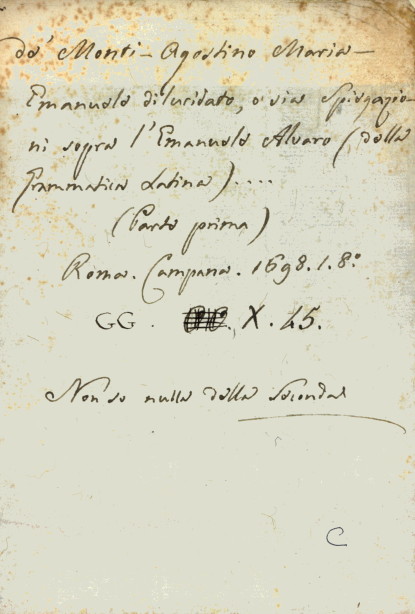 de' Monti - Agostino Maria -
Emanuele dilucidato, o sia Spiegazio-
ni sopra l'Emanuele Alvaro (della
Grammatica Latina) ....
(Parte prima)
Roma. Campana. 1698. 1. 8º
GG. X. 45.
Non so nulla della Seconda
C